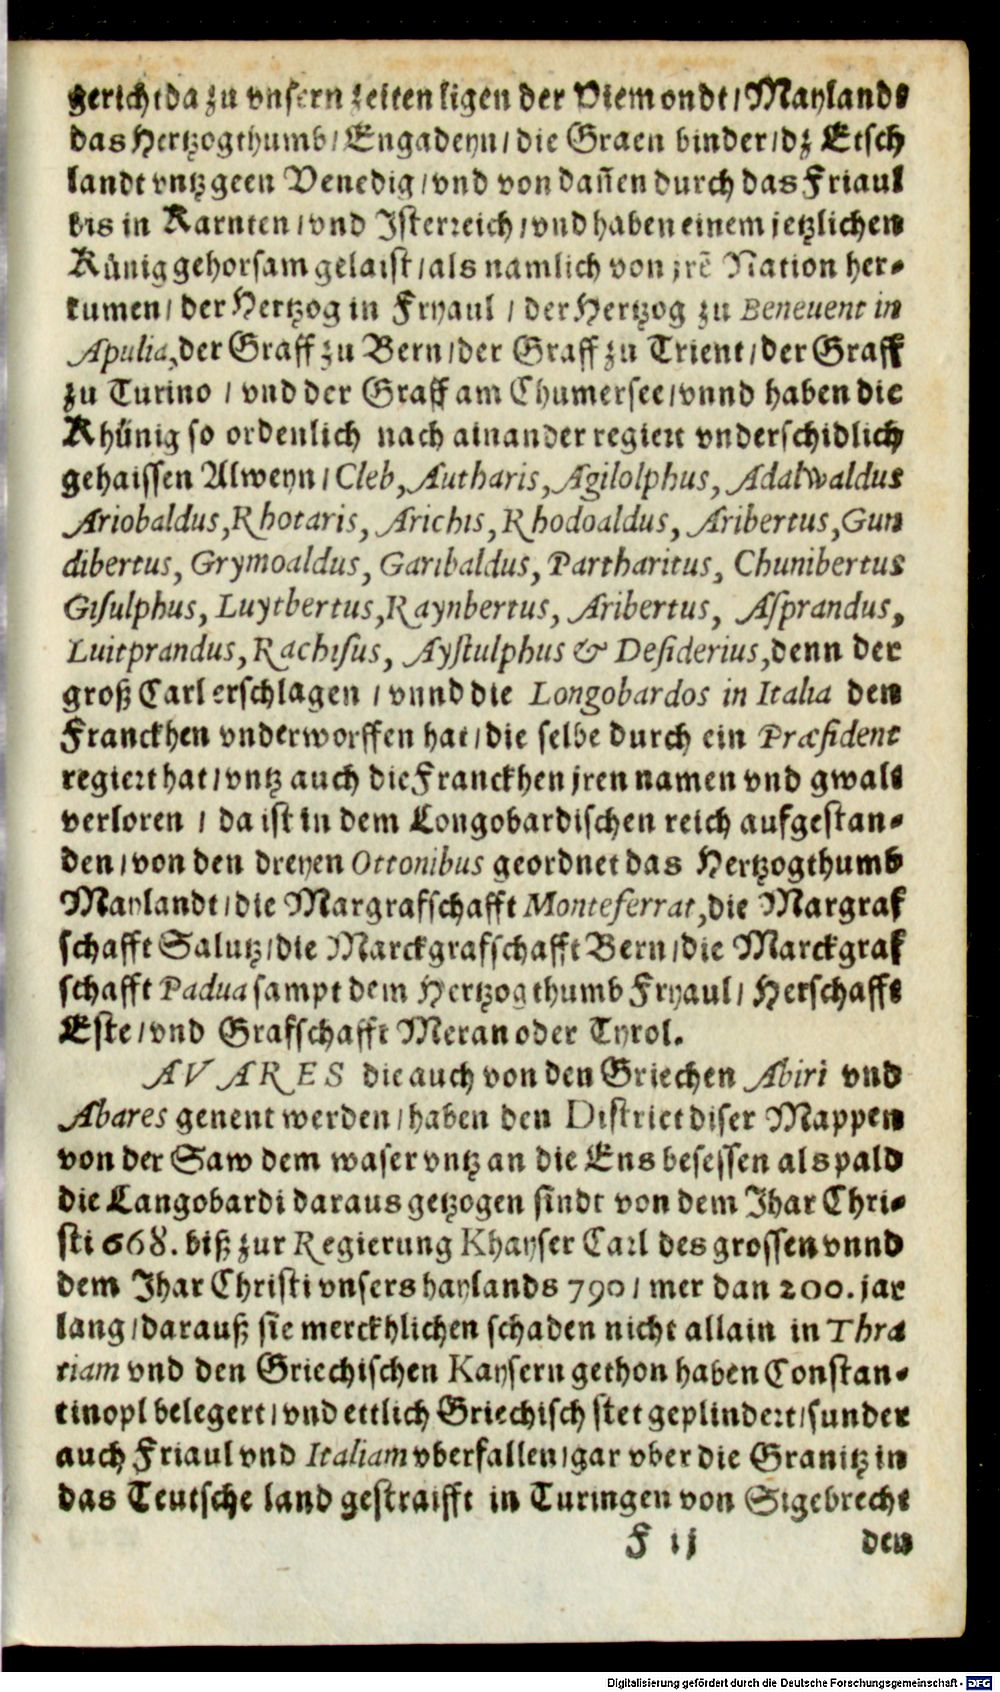 gericht da zu vnsern zeiten ligen der Viemondt / Maylands
das Hertzogthumb / Engadeyn / die Graen binder / dz Etsch
landt vntz geen Venedig / vnd von dañen durch das Friaul
bis in Karnten / vnd Isterreich / vnd haben einem jetzlichen
Künig gehorsam gelaist / als namlich von jrē Nation her-
kumen / der Hertzog in Fryaul / der Hertzog zu Beneuent in
Apulia, der Graff zu Bern / der Graff zu Trient / der Graff
zu Turino / vnd der Graff am Chumersee / vnnd haben die
Khünig so ordenlich nach ainander regiert vnderschidlich
gehaissen Alweyn / Cleb, Autharis, Agilolphus, Adalwaldus
Ariobaldus, Rhotaris, Arichis, Rhodoaldus, Aribertus, Gun
dibertus, Grymoaldus, Garibaldus, Partharitus, Chunibertus
Gisulphus, Luytbertus, Raynbertus, Aribertus, Asprandus,
Luitprandus, Rachisus, Aystulphus & Desiderius, denn der
groß Carl erschlagen / vnnd die Longobardos in Italia den
Franckhen vnderworffen hat / die selbe durch ein Præsident
regiert hat / vntz auch die Franckhen jren namen vnd gwalt
verloren / da ist in dem Longobardischen reich aufgestan-
den / von den dreyen Ottonibus geordnet das Hertzogthumb
Maylandt / die Margrafschafft Monteferrat, die Margraf
schafft Salutz / die Marckgrafschafft Bern / die Marckgraf
schafft Padua sampt dem Hertzogthumb Fryaul / Herschafft
Este / vnd Grafschafft Meran oder Tyrol.
AVARES die auch von den Griechen Abiri vnd
Abares genent werden / haben den District diser Mappen
von der Saw dem waser vntz an die Ens besessen als pald
die Langobardi daraus getzogen sindt von dem Jhar Chri-
sti 668. biß zur Regierung Khayser Carl des grossen vnnd
dem Jhar Christi vnsers haylands 790 / mer dan 200. jar
lang / darauß sie merckhlichen schaden nicht allain in Thra
tiam vnd den Griechischen Kaysern gethon haben Constan-
tinopl belegert / vnd ettlich Griechisch stet geplindert / sunder
auch Friaul vnd Italiam vberfallen / gar vber die Granitz in
das Teutsche land gestraifft in Turingen von Sigebrecht
F ij den
Digitalisierung gefördert durch die Deutsche Forschungsgemeinschaft - DFG